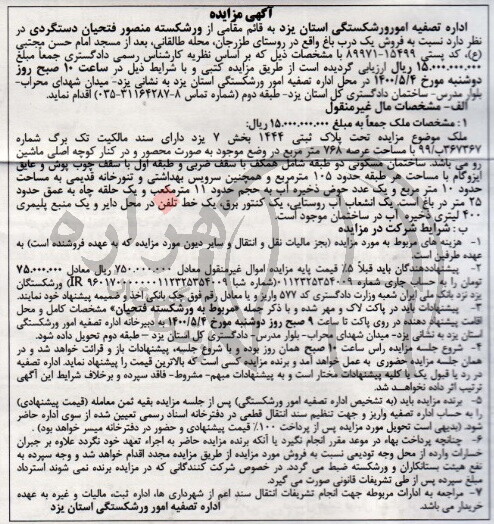 آگهی مزایده
اداره تصفیه امورورشکستگی استان یزد به قائم مقامی از ورشکسته منصور فتحیان دستگردی در
نظر دارد نسبت به فروش یک درب باغ واقع در روستای طزرجان، محله طالقانی، بعد از مسجد امام حسن مجتبی
(ع)، کد پستی ۱۵۴۹۹-۸۹۹۷۱ با مشخصات ذیل که بر اساس نظریه کارشناس رسمی دادگستری جمعاً مبلغ
۱۵.۰۰۰.۰۰۰.۰۰۰ ریال ارزیابی گردیده است از طریق مزایده کتبی و با شرایط ذیل در ساعت ۱۰ صبح روز
دوشنبه مورخ ۱۴۰۰/۵/۴ در محل اداره تصفیه امور ورشکستگی استان یزد به نشانی یزد- میدان شهدای محراب-
بلوار مدرس- ساختمان دادگستری کل استان یزد- طبقه دوم (شماره تماس ۸-۳۱۱۶۴۲۸۷-۰۳۵) اقدام نماید.
الف- مشخصات مال غیرمنقول
۱: مشخصات ملک جمعاً به مبلغ ۱۵.۰۰۰.۰۰۰.۰۰۰ ریال:
ملک موضوع مزایده تحت پلاک ثبتی ۱۴۴۴ بخش ۷ یزد دارای سند مالکیت تک برگ شماره
۳۶۷۳۶۷ب/۹۹ با مساحت عرصه ۷۶۸ متر مربع در وضع موجود به صورت محصور و در کنار کوچه اصلی ماشین
رو می باشد. ساختمان مسکونی دو طبقه شامل همکف با سقف ضربی و طبقه اول با سقف چوب پوش و عایق
ایزوگام با مساحت در طبقه حدود ۱۰۵ مترمربع و همچنین سرویس بهداشتی و تنورخانه قدیمی به مساحت
حدود ۱۰ متر مربع و یک عدد حوض ذخیره آب به حجم حدود ۱۱ مترمکعب و یک حلقه چاه به عمق حدود
۲۵ متر در باغ است. یک انشعاب آب روستایی، یک کنتور برق، یک خط تلفن در محل دایر و یک منبع پلیمری
۴۰۰ لیتری ذخیره آب در ساختمان موجود است.
ب: شرایط شرکت در مزایده
۱- هزینه های مربوط به مورد مزایده (بجز مالیات نقل و انتقال و سایر دیون مورد مزایده که به عهده فروشنده است) به
عهده طرفین است
۲- پیشنهاددهندگان باید قبلاً ۵٪ قیمت پایه مزایده اموال غیرمنقول معادل ۷۵۰.۰۰۰.۰۰۰ ریال معادل ۷۵.۰۰۰.۰۰۰
تومان را به حساب جاری شماره ۰۱۱۲۳۲۵۳۵۴۰۰۹ (شماره شبا IR 960170000000112325354009) ورشکستگان
یزد نزد بانک ملی ایران شعبه وزارت دادگستری کد ۵۷۷ واریز و یا معادل رقم فوق چک بانکی اخذ و ضمیمه پیشنهاد خود نمایند.
۳- پیشنهادات باید در پاکت لاک و مهر شده و با ذکر عبارت «مربوط به ورشکسته فتحیان» مشخصات کامل و محل
اقامت پیشنهاد دهنده در روی پاکت تا ساعت ۹ صبح روز دوشنبه مورخ ۱۴۰۰/۵/۴ به دبیرخانه اداره تصفیه امور ورشکستگی
استان یزد به نشانی یزد- میدان شهدای محراب- بلوار مدرس- دادگستری کل استان یزد – طبقه دوم تحویل داده شود.
۴- شروع جلسه مزایده راس ساعت ۱۰ صبح همان روز بوده و با شروع جلسه، پیشنهادات باز و قرائت خواهد شد و در
همان جلسه مزایده حضوری به عمل خواهد آمد و برنده مزایده کسی است که بالاترین قیمت را پیشنهاد نماید. اداره تصفیه
در رد یا قبول یک یا کلیه پیشنهادات مختار است و به پیشنهادات مبهم- مشروط- فاقد سپرده و برخلاف شرایط این آگهی
ترتیب اثر داده نخواهــد شد.
۵- برنده مزایده باید (به تشخیص اداره تصفیه امور ورشکستگی) پس از جلسه مزایده بقیه ثمن معامله (قیمت پیشنهادی)
را به حساب اداره تصفیه واریز و جهت تنظیم سند انتقال قطعی در دفترخانه اسناد رسمی تعیین شده از سوی اداره حاضر
شود. (بدیهی است تحویل مورد مزایده پس از پرداخت ۱۰۰٪ قیمت پیشنهادی و حضور در دفترخانه میسر خواهد بود).
۶- چنانچه پرداخت بهاء در موعد مقرر انجام نگیرد یا آنکه برنده مزایده حاضر به اجراء تعهد خود نگردد علاوه بر جبران
خسارات وارده از محل وجه تودیعی نسبت به فروش مورد مزایده از طریق مزایده مجدد اقدام خواهد شد و وجه سپرده به
نفع هیئت بستانکاران و ورشکسته ضبط می گردد. در خصوص شرکت کنندگانی که در مزایده برنده نمی شوند استرداد
مبلغ سپرده پس از طی تشریفات قانونی صورت می گیرد.
۷- مراجعه به ادارات مربوطه جهت انجام تشریفات انتقال سند اعم از شهرداری ها، اداره ثبت، مالیات و غیره به عهده
خریدار می باشد.
اداره تصفیه امور ورشکستگی استان یزد